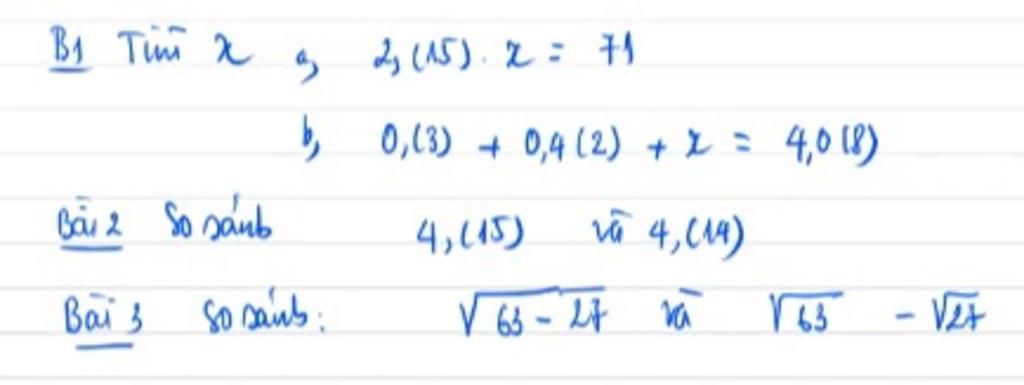 B1 Tìm x a, 2,(15). x = 71
b, 0,(3) + 0,4(2) + x = 4,0(8)
Bài 2 So sánh 4,(15) và 4,(14)
Bài 3 So sánh: √63 - 27 và √63 - √27